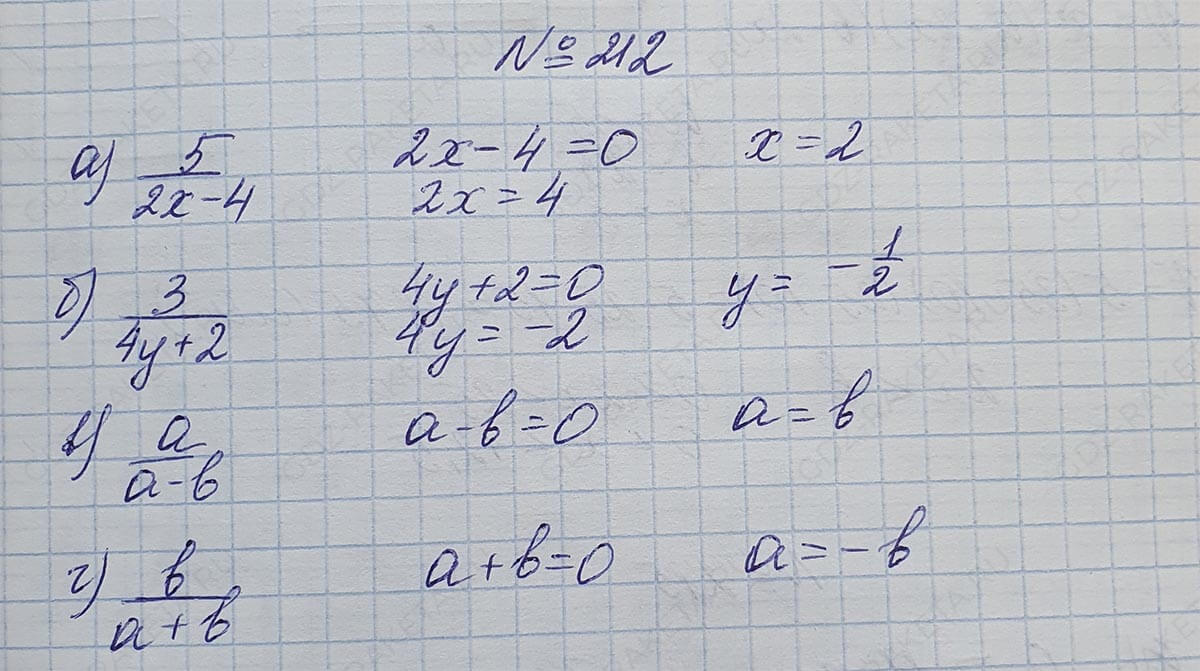 № 212
а) 5/(2x-4) 2x-4=0 x=2
2x=4
б) 3/(4y+2) 4y+2=0 y= -1/2
4y= -2
в) a/(a-b) a-b=0 a=b
г) b/(a+b) a+b=0 a=-b